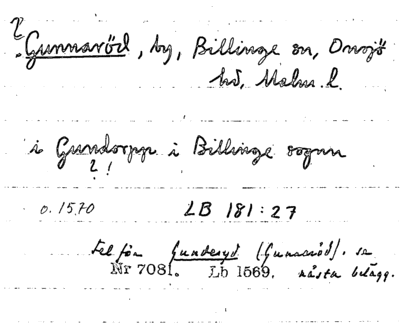 ?
Gunnaröd, by, Billinge sn, Onsjö
hd, Malm. l.
i Gundorpp i Billinge sognn
? !
o. 1570 LB 181:27
Fel för Gunderyd (Gunnaröd), se
Nr 7081. Lb 1569. nästa belägg.